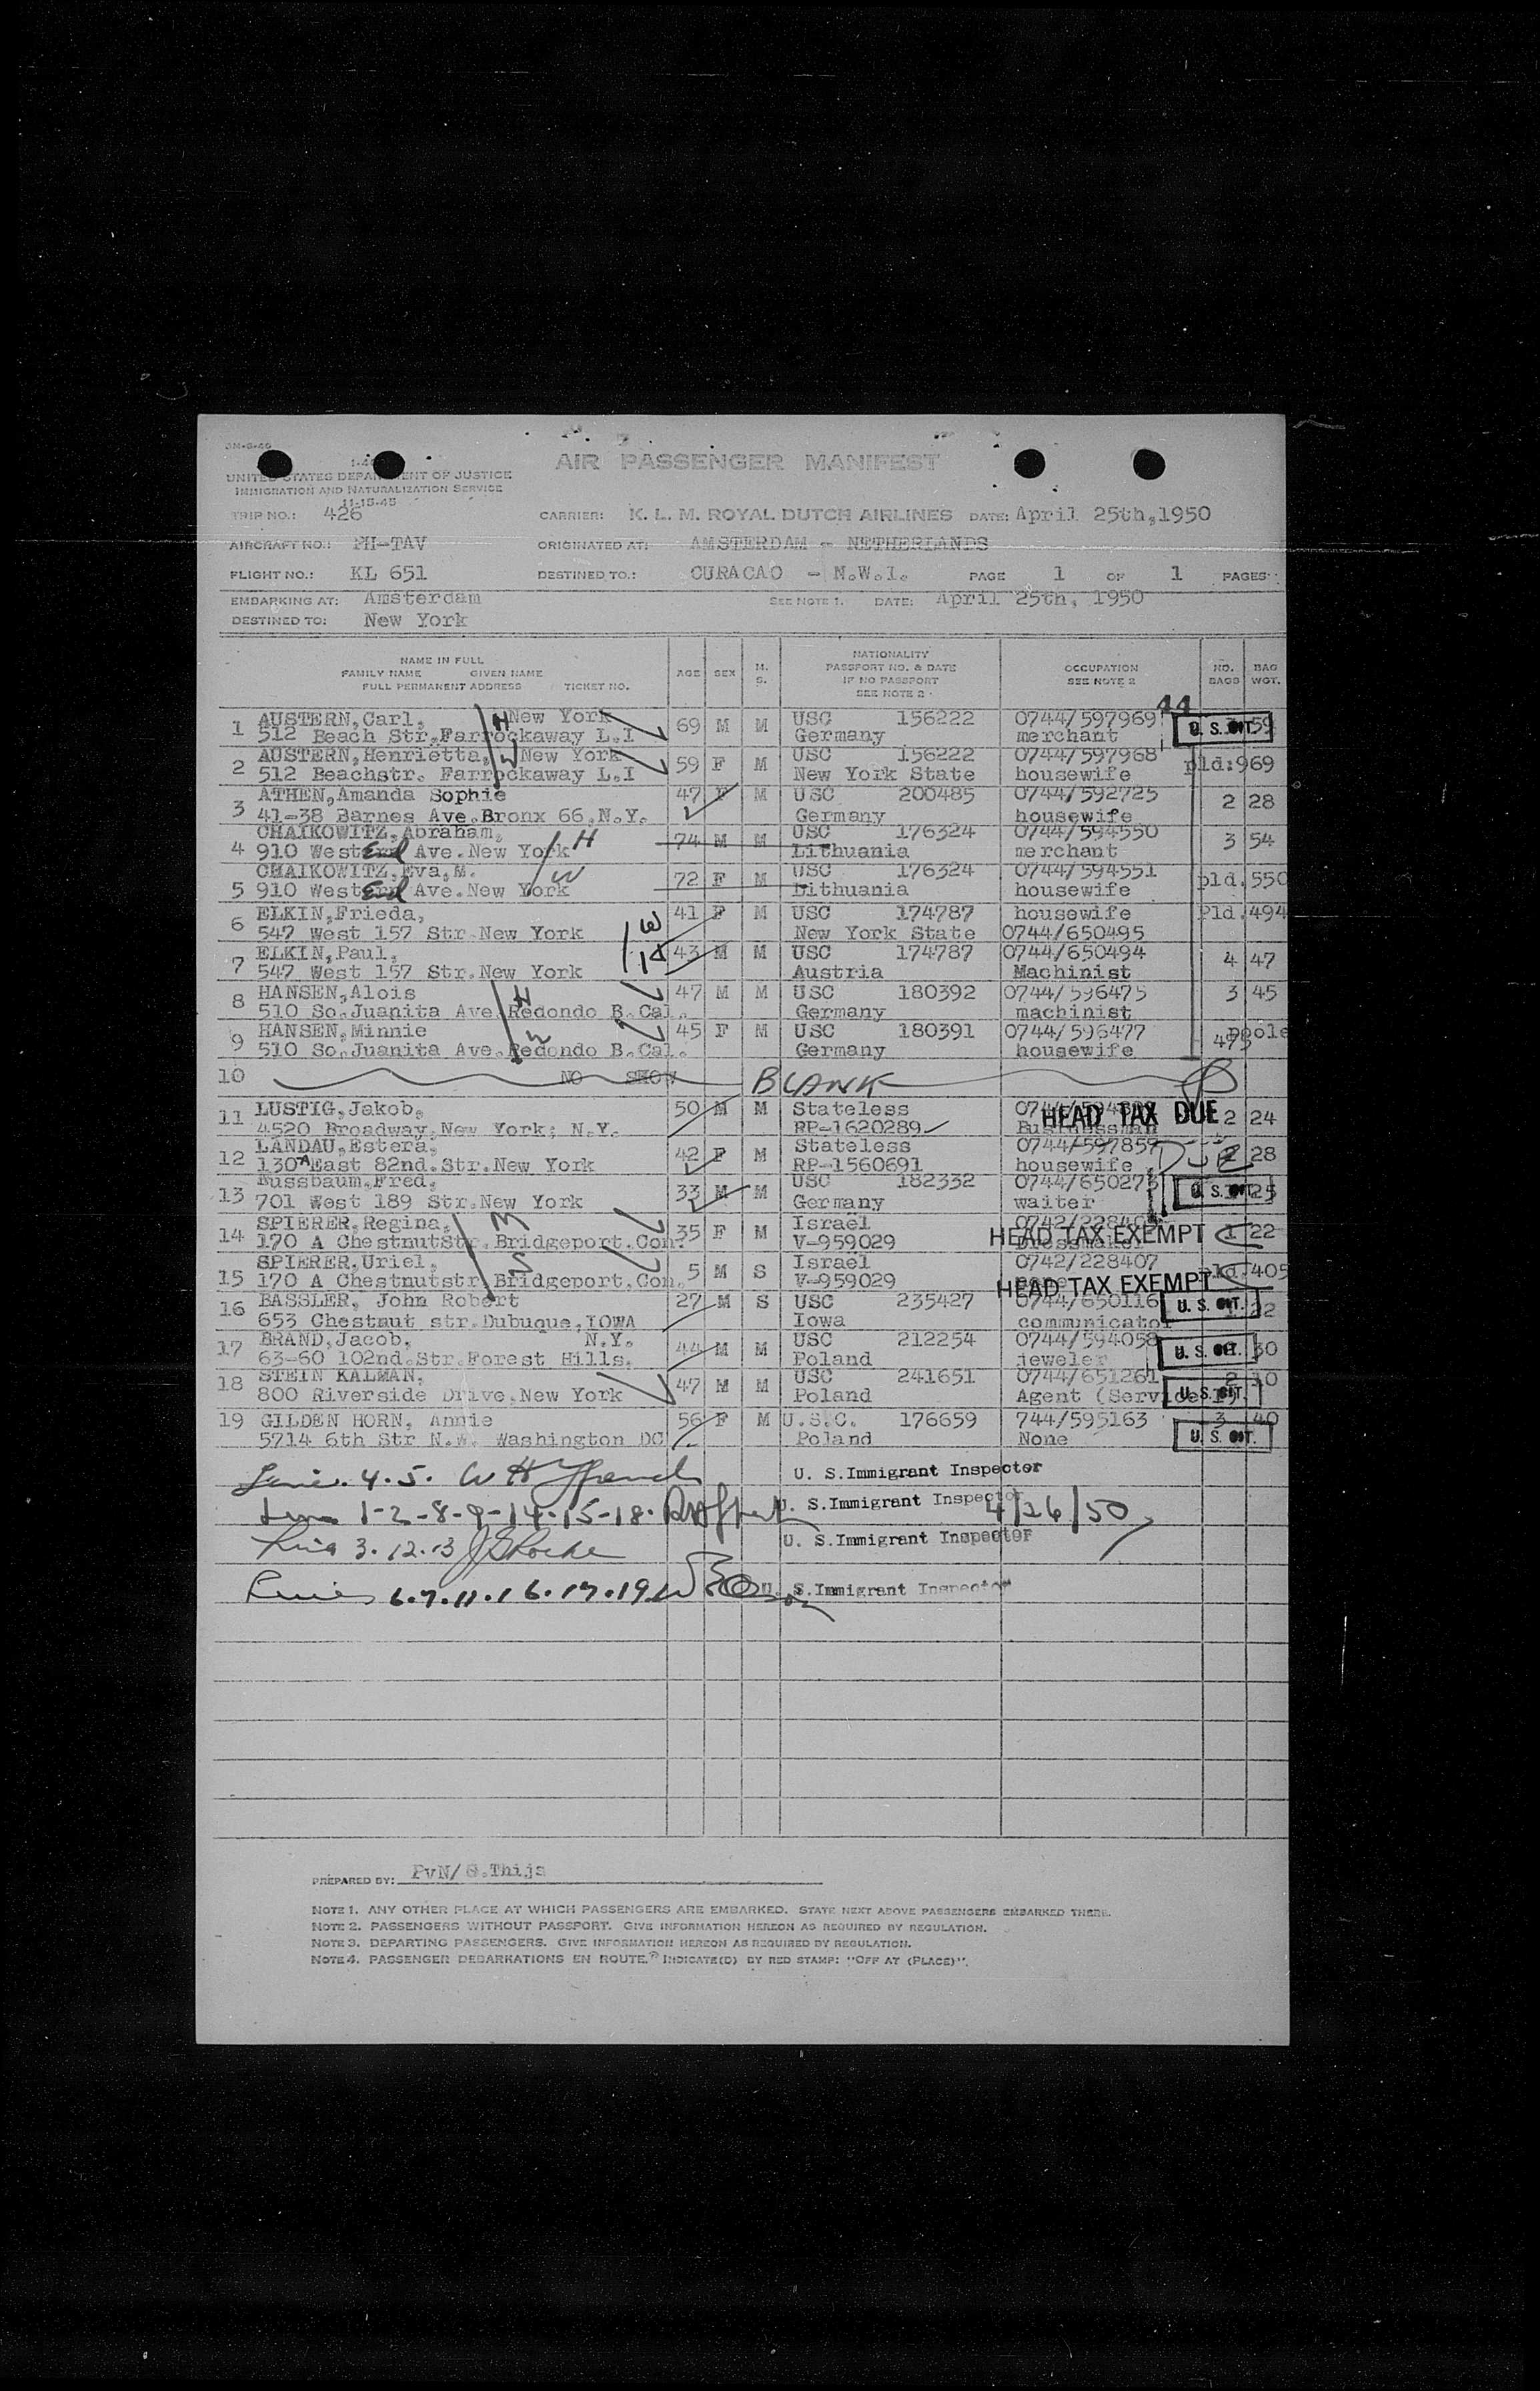 AIR PASSENGER MANIFEST
UNITED STATES DEPARTMENT OF JUSTICE
IMMIGRATION AND NATURALIZATION SERVICE
11-15-45
TRIP NO.: 426 CARRIER: K. L. M. ROYAL DUTCH AIRLINES DATE: April 25th,1950
AIRCRAFT NO.: PH-TAV ORIGINATED AT: AMSTERDAM - NETHERLANDS
FLIGHT NO.: KL 651 DESTINED TO.: CURACAO - N.W.I. PAGE 1 OF 1 PAGES
EMBARKING AT: Amsterdam SEE NOTE 1. DATE: April 25th, 1950
DESTINED TO: New York
NAME IN FULL
FAMILY NAME GIVEN NAME
FULL PERMANENT ADDRESS TICKET NO.
AGE SEX M. S.
NATIONALITY
PASSPORT NO. & DATE
IF NO PASSPORT
SEE NOTE 2
OCCUPATION
SEE NOTE 2
NO. BAGS
BAG WGT.
44
1 AUSTERN,Carl, H New York 69 M M USC 156222 0744/597969 U. S. CIT. 59
512 Beach Str.Farrockaway L.I Germany merchant
2 AUSTERN,Henrietta, W New York 59 F M USC 156222 0744/597968 pld:969
512 Beachstr. Farrockaway L.I New York State housewife
3 ATHEN,Amanda Sophie 47 F M USC 200485 0744/592725 2 28
41-38 Barnes Ave.Bronx 66.N.Y. Germany housewife
4 CHAIKOWITZ,Abraham, H 74 M M USC 176324 0744/594550 3 54
910 West End Ave.New York Lithuania merchant
5 CHAIKOWITZ,Eva,M. W 72 F M USC 176324 0744/594551 pld.550
910 West End Ave.New York Lithuania housewife
6 ELKIN,Frieda, W 41 F M USC 174787 housewife Pld.494
547 West 157 Str.New York New York State 0744/650495
7 ELKIN,Paul, H 43 M M USC 174787 0744/650494 4 47
547 West 157 Str.New York Austria Machinist
8 HANSEN,Alois H 47 M M USC 180392 0744/596475 3 45
510 So.Juanita Ave.Redondo B.Cal. Germany machinist
9 HANSEN,Minnie W 45 F M USC 180391 0744/596477 475
510 So.Juanita Ave.Redondo B.Cal. Germany housewife
10 NO SHOW BLANK
11 LUSTIG,Jakob, 50 M M Stateless HEAD TAX DUE 2 24
4520 Broadway.New York; N.Y. RP-1620289 Businessman
12 LANDAU,Estera, 42 F M Stateless 0744/597859 DUE 2 28
130 A East 82nd.Str.New York RP-1560691 housewife
13 Nussbaum,Fred, 33 M M USC 182332 0744/650273 U. S. CIT. 25
701 West 189 Str.New York Germany waiter
14 SPIERER,Regina, M 35 F M Israel HEAD TAX EXEMPT 1 22
170 A ChestnutStr.Bridgeport.Con. V-959029 Dressmaker
15 SPIERER,Uriel, S 5 M S Israel 0742/228407 pld.405
170 A Chestnutstr.Bridgeport,Con. V-959029 HEAD TAX EXEMPT
16 BASSLER, John Robert 27 M S USC 235427 0744/650116 U. S. CIT. 22
653 Chestnut str.Dubuque,IOWA Iowa communicator
17 BRAND,Jacob, N.Y. 44 M M USC 212254 0744/594058 U. S. CIT. 30
63-60 102nd.Str.Forest Hills. Poland jeweler
18 STEIN KALMAN, 47 M M USC 241651 0744/651261 2 10
800 Riverside Drive.New York Poland Agent (Service U. S. CIT.
19 GILDEN HORN, Annie 56 F M U.S.C. 176659 744/595163 3 40
5714 6th Str N.W. Washington DC Poland None U. S. CIT.
4.5. W H French U. S.Immigrant Inspector
1-2-8-9-14-15-18. U. S.Immigrant Inspector 4/26/50
3.12.13 U. S.Immigrant Inspector
6.7.11.16.17.19 U. S.Immigrant Inspector
PREPARED BY: PvN/ G.Thijs
NOTE 1. ANY OTHER PLACE AT WHICH PASSENGERS ARE EMBARKED. STATE NEXT ABOVE PASSENGERS EMBARKED THERE.
NOTE 2. PASSENGERS WITHOUT PASSPORT. GIVE INFORMATION HEREON AS REQUIRED BY REGULATION.
NOTE 3. DEPARTING PASSENGERS. GIVE INFORMATION HEREON AS REQUIRED BY REGULATION.
NOTE 4. PASSENGER DEBARKATIONS EN ROUTE. INDICATE(D) BY RED STAMP: "OFF AT (PLACE)".